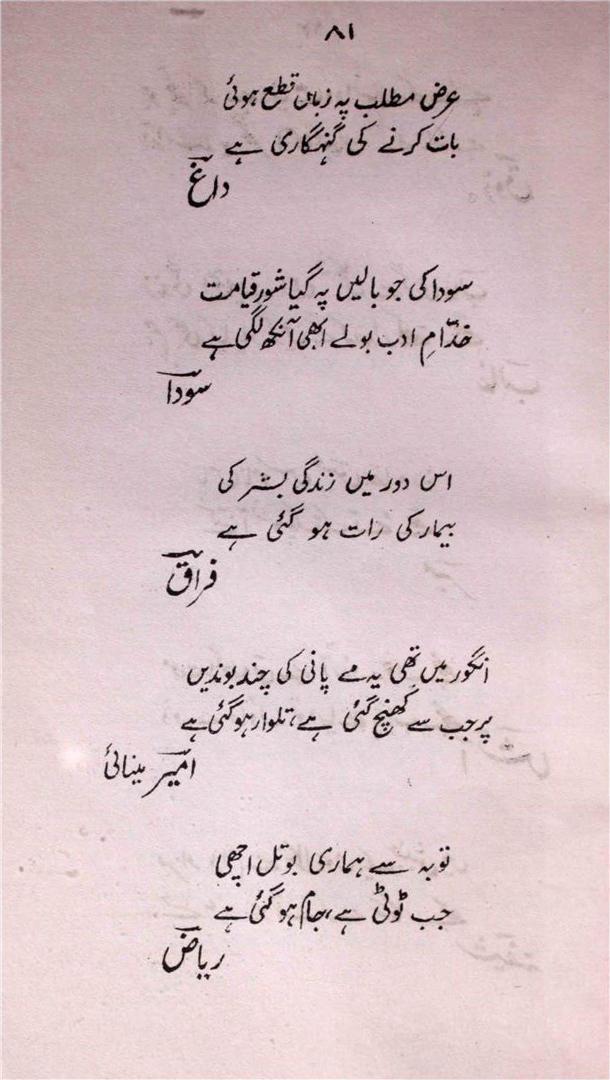 ۸۱
عرض مطلب پہ زباں قطع ہوئی
بات کرنے کی گنہگاری ہے
داغ
سودا کی جو بالیں پہ گیا شورِ قیامت
خدّامِ ادب بولے ابھی آنکھ لگی ہے
سودا
اس دور میں زندگی بشر کی
بیمار کی رات ہو گئی ہے
فراق
انگور میں تھی یہ مے پانی کی چند بوندیں
پر جب سے کھِنچ گئی ہے، تلوار ہو گئی ہے
امیر مینائی
توبہ سے ہماری بوتل اچھی
جب ٹوٹی ہے، جام ہو گئی ہے
ریاض